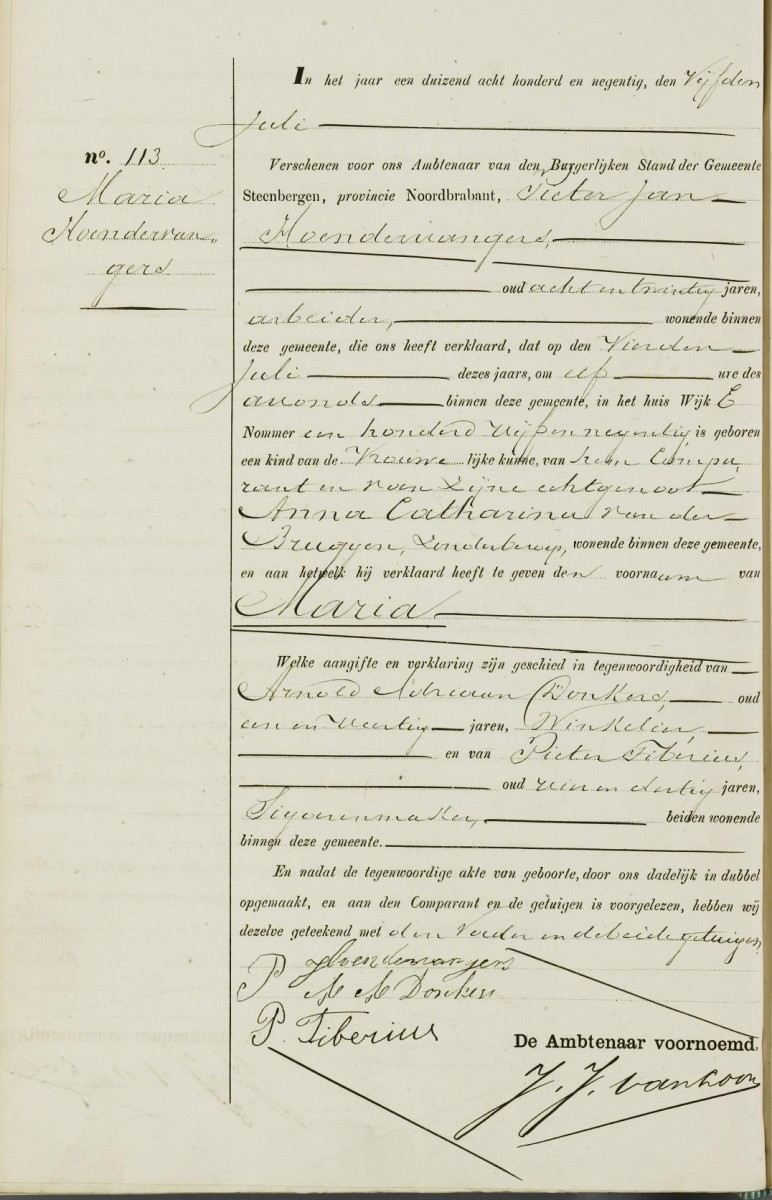 In het jaar een duizend acht honderd en negentig, den Vijfden
Juli
nº. 113
Maria
Hoendervan„
gers
Verschenen voor ons Ambtenaar van den Burgerlijken Stand der Gemeente
Steenbergen, provincie Noordbrabant, Pieter Jan
Hoendervangers,
oud acht en twintig jaren,
arbeider, wonende binnen
deze gemeente, die ons heeft verklaard, dat op den Vierden
Juli dezes jaars, om elf ure des
avonds binnen deze gemeente, in het huis Wijk E
Nommer een honderd vijf en negentig is geboren
een kind van de Vrouwe lijke kunne, van hem Compa„
rant en van zijne echtgenoot
Anna Catharina van der
Bruggen, zonder beroep, wonende binnen deze gemeente,
en aan hetwelk hij verklaard heeft te geven den voornaam van
Maria
Welke aangifte en verklaring zijn geschied in tegenwoordigheid van
Arnold Adriaan Donkers, oud
een en veertig jaren, Winkelier,
en van Pieter Tiberius,
oud vier en dertig jaren,
Sigarenmaker, beiden wonende
binnen deze gemeente.
En nadat de tegenwoordige akte van geboorte, door ons dadelijk in dubbel
opgemaakt, en aan den Comparant en de getuigen is voorgelezen, hebben wij
dezelve geteekend met den Vader en de beide getuigen.
P J Hoendervangers
Donkers
P. Tiberius
De Ambtenaar voornoemd,
J. J. van Loon